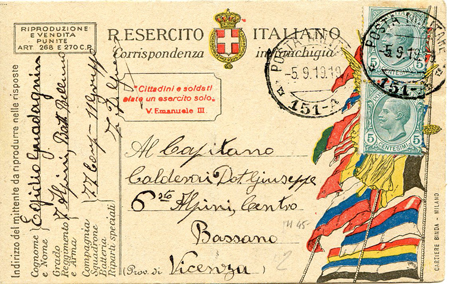 RIPRODUZIONE
E VENDITA
PUNITE
ART 268 E 270 C.P.
R. ESERCITO ITALIANO
Corrispondenza in franchigia
"Cittadini e soldati
siate un esercito solo"
V. Emanuele III.
POSTA MILITARE
-5.9.19
151-A
-5.9.19.19
151-A
5 CENTESIMI 5
5 CENTESIMI 5
Al Capitano
Calderari Dot Giuseppe
6° Alpini, Centro
Bassano
(Prov. di Vicenza)
2
Indirizzo del mittente da riprodurre nelle risposte
Cognome e Nome
Grado
Reggimento e Arma 7 Alpini Batt Belluno
Compagnia
Squadrone
Batteria
Riparti speciali 77 Comp
CARTIERE BINDA - MILANO